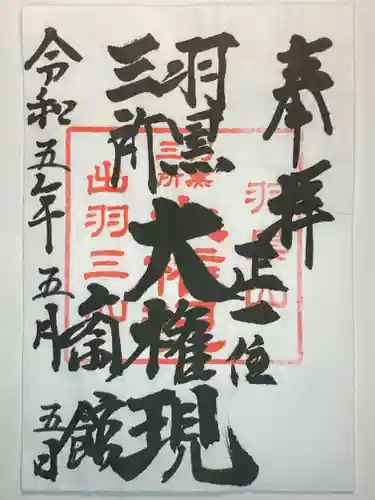 奉拝
正一位
羽黒
三所
大権現
斎館
令和五年五月五日
出羽三山